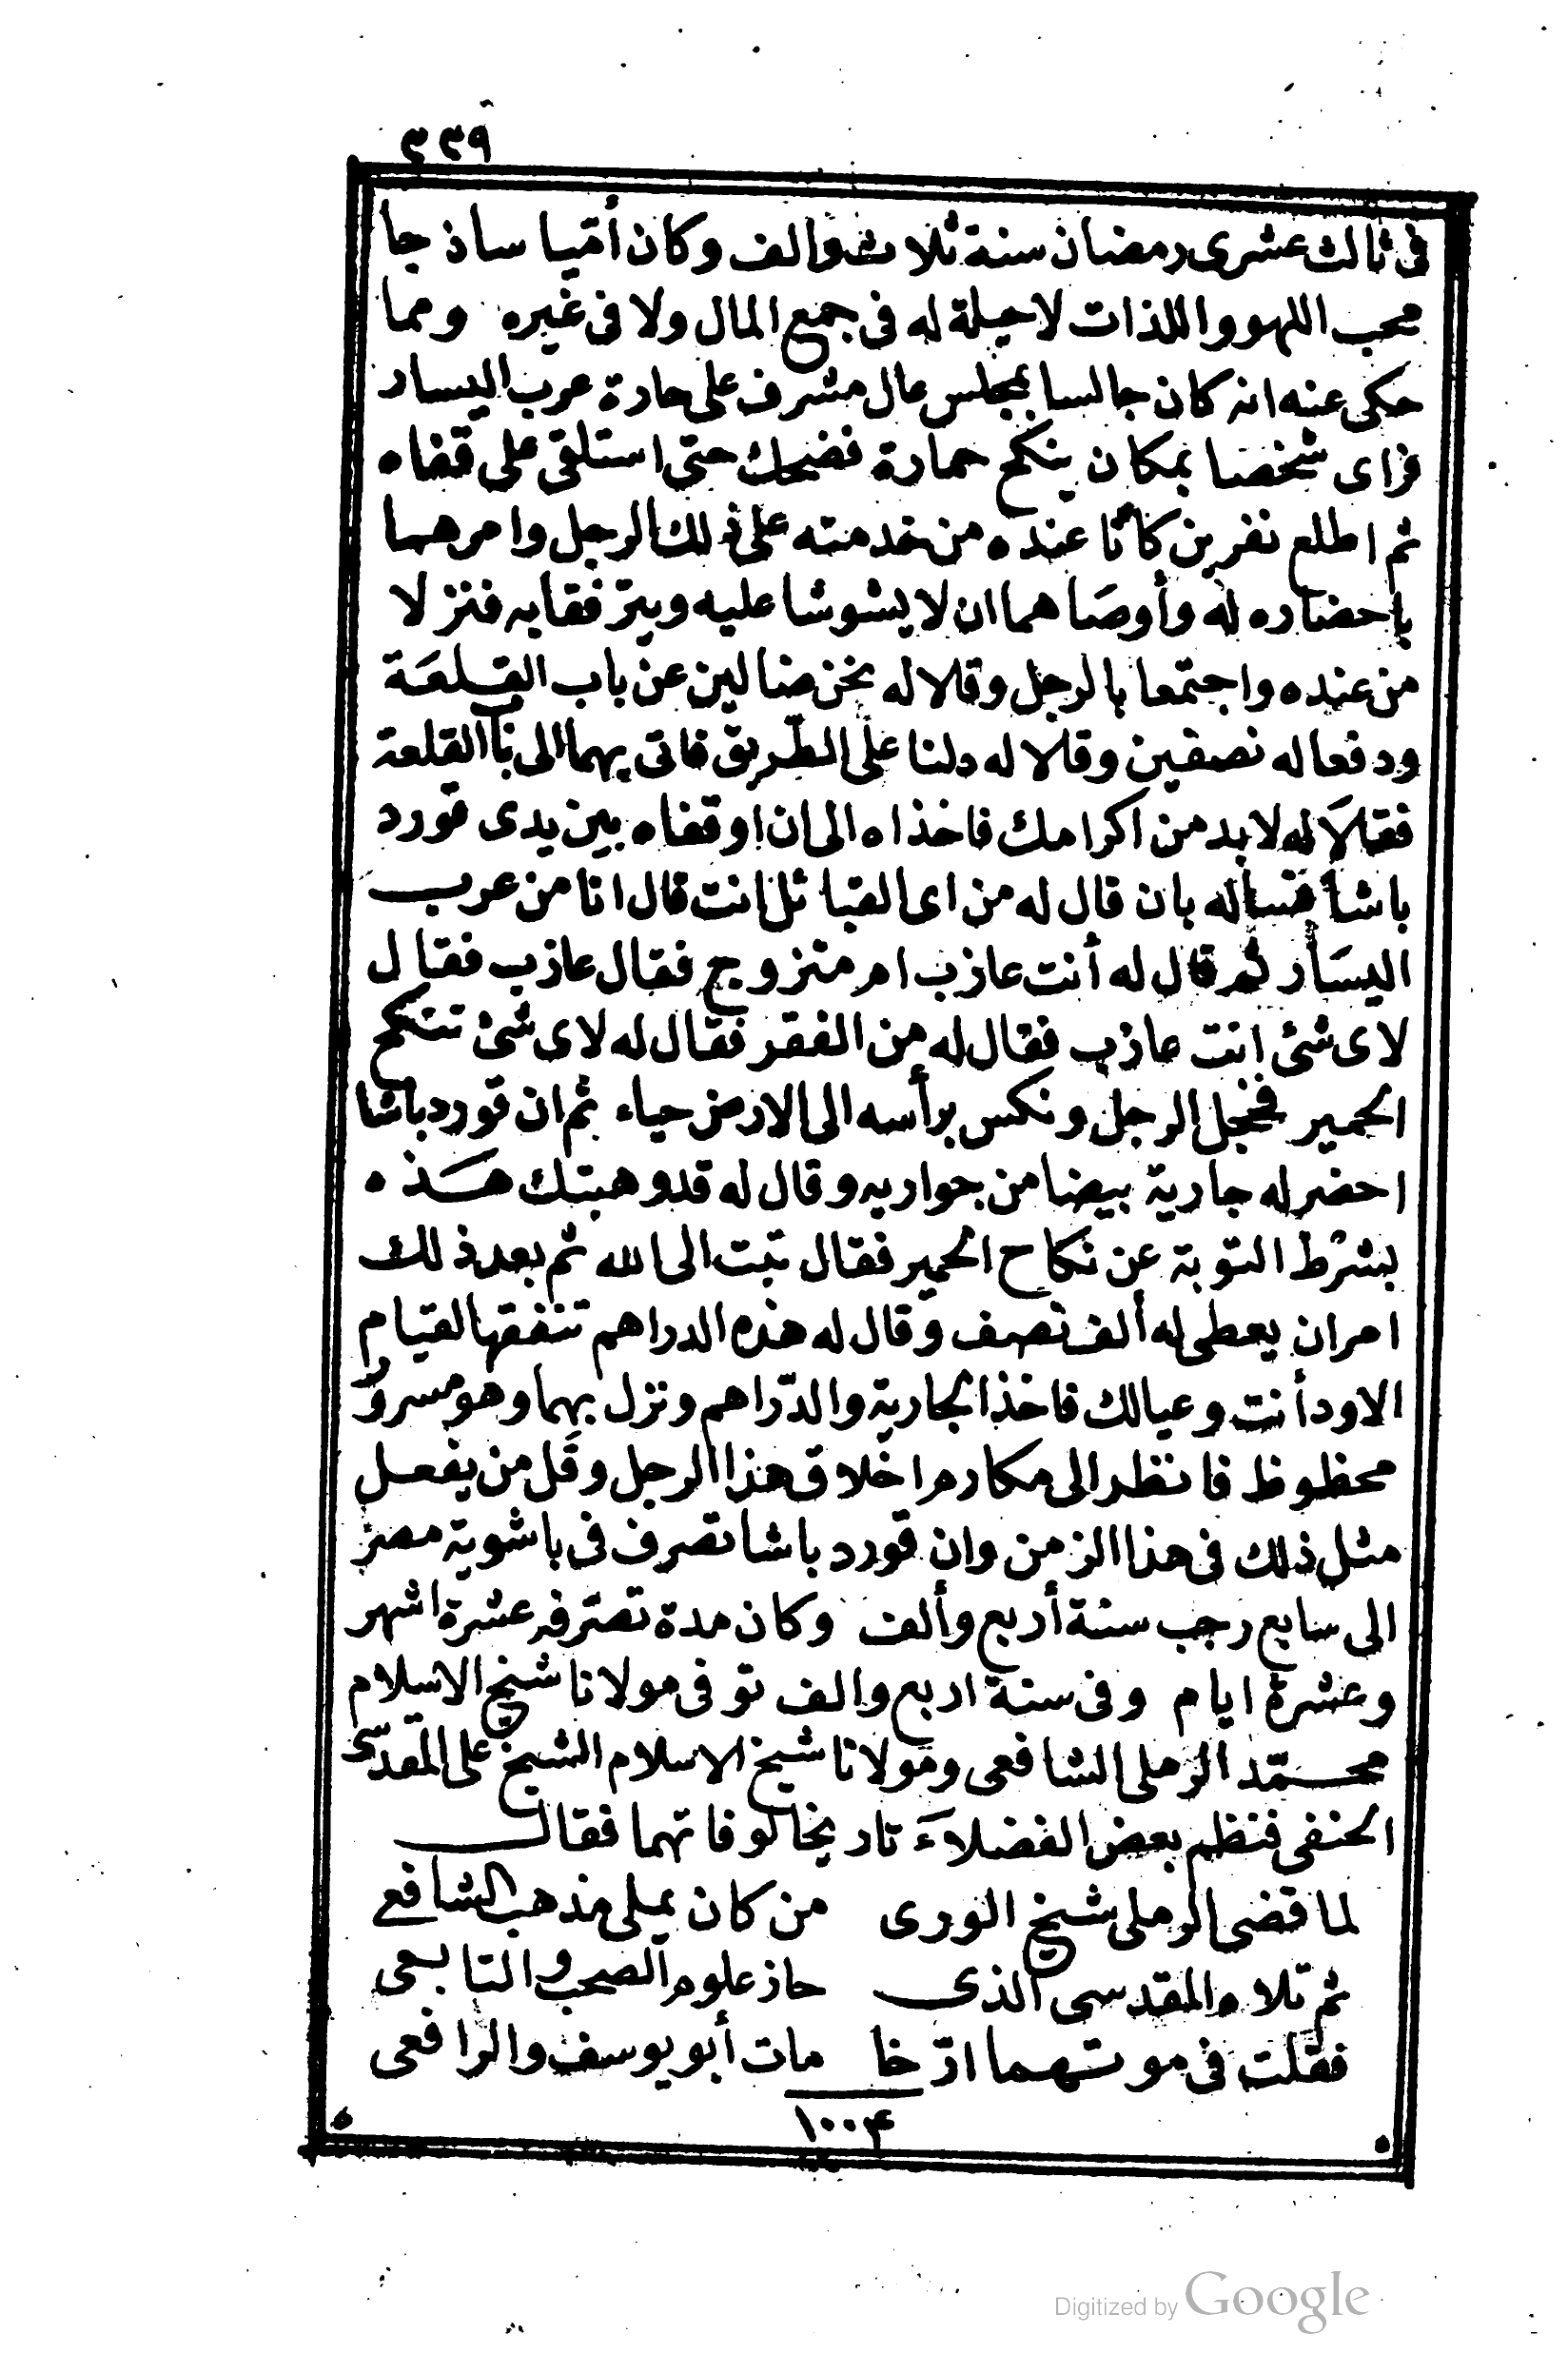 ٣٣٩
فى ثالث عشرى رمضان سنة ثلاث والف وكان أمّيا ساذجا
محب اللهو واللذات لا حيلة له فى جمع المال ولا فى غيره ومما
حكى عنه انه كان جالسا بمجلس عال مشرف على حارة عرب اليسار
فراى شخصا بمكان ينكح حمارة فضحك حتى استلقى على قفاه
ثم اطلع نفرين كانا عنده من خدمته على ذلك الرجل وامرهما
باحضاره له وأوصَاهما ان لا يشوشا عليه ويترفقا به فنزلا
من عنده واجتمعا بالرجل وقلا له نحن ضالين عن باب القلعَة
ودفعا له نصفين وقلا له دلنا على الطّريق فاتى بهما الى باب القلعة
فقلاَ له لا بد من اكرامك فاخذاه الى ان اوقفاه بين يدى قورد
باشا فسأله بان قال له من اى القبائل انت قال انا من عرب
اليسَار ثم قال له أنت عازب ام متزوج فقال عازب فقال
لاى شئ انت عازب فقال له من الفقر فقال له لاى شئ تنكح
الحمير فخجل الرجل ونكس برأسه الى الارض حياء ثم ان قورد باشا
احضر له جارية بيضا من جواريه وقال له قد وهبتك هَذه
بشرط التوبة عن نكاح الحمير فقال تبت الى الله ثم بعد ذلك
امر ان يعطى له ألف نصف وقال له هذه الدراهم تنفقها لقيام
الاود أنت وعيالك فاخذ الجارية والدّراهم ونزل بهما وهو مسرور
محظوظ فانظر الى مكارم اخلاق هذا الرجل وقَل من يفعل
مثل ذلك فى هذا الزمن وان قورد باشا تصرف فى باشوية مصر
الى سابع رجب سنة أربع وألف وكان مدة تصرّفه عشرة اشهر
وعشرة ايام وفى سنة اربع والف توفى مولانا شيخ الاسلام
محمّد الرملى الشافعى ومولانا شيخ الاسلام الشيخ على المقدسّى
الحنفى فنظم بعض الفضلاَء تاريخا لوفاتهما فقال
لما قضى الرملى شيخ الورى من كان يملى مذهب الشافعى
ثم تلاه المقدسى الذى حاز علوم الصحب والتابعى
فقلت فى موتهما ارّخا مات أبو يوسف والرافعى
١٠٠۴
Digitized by Google